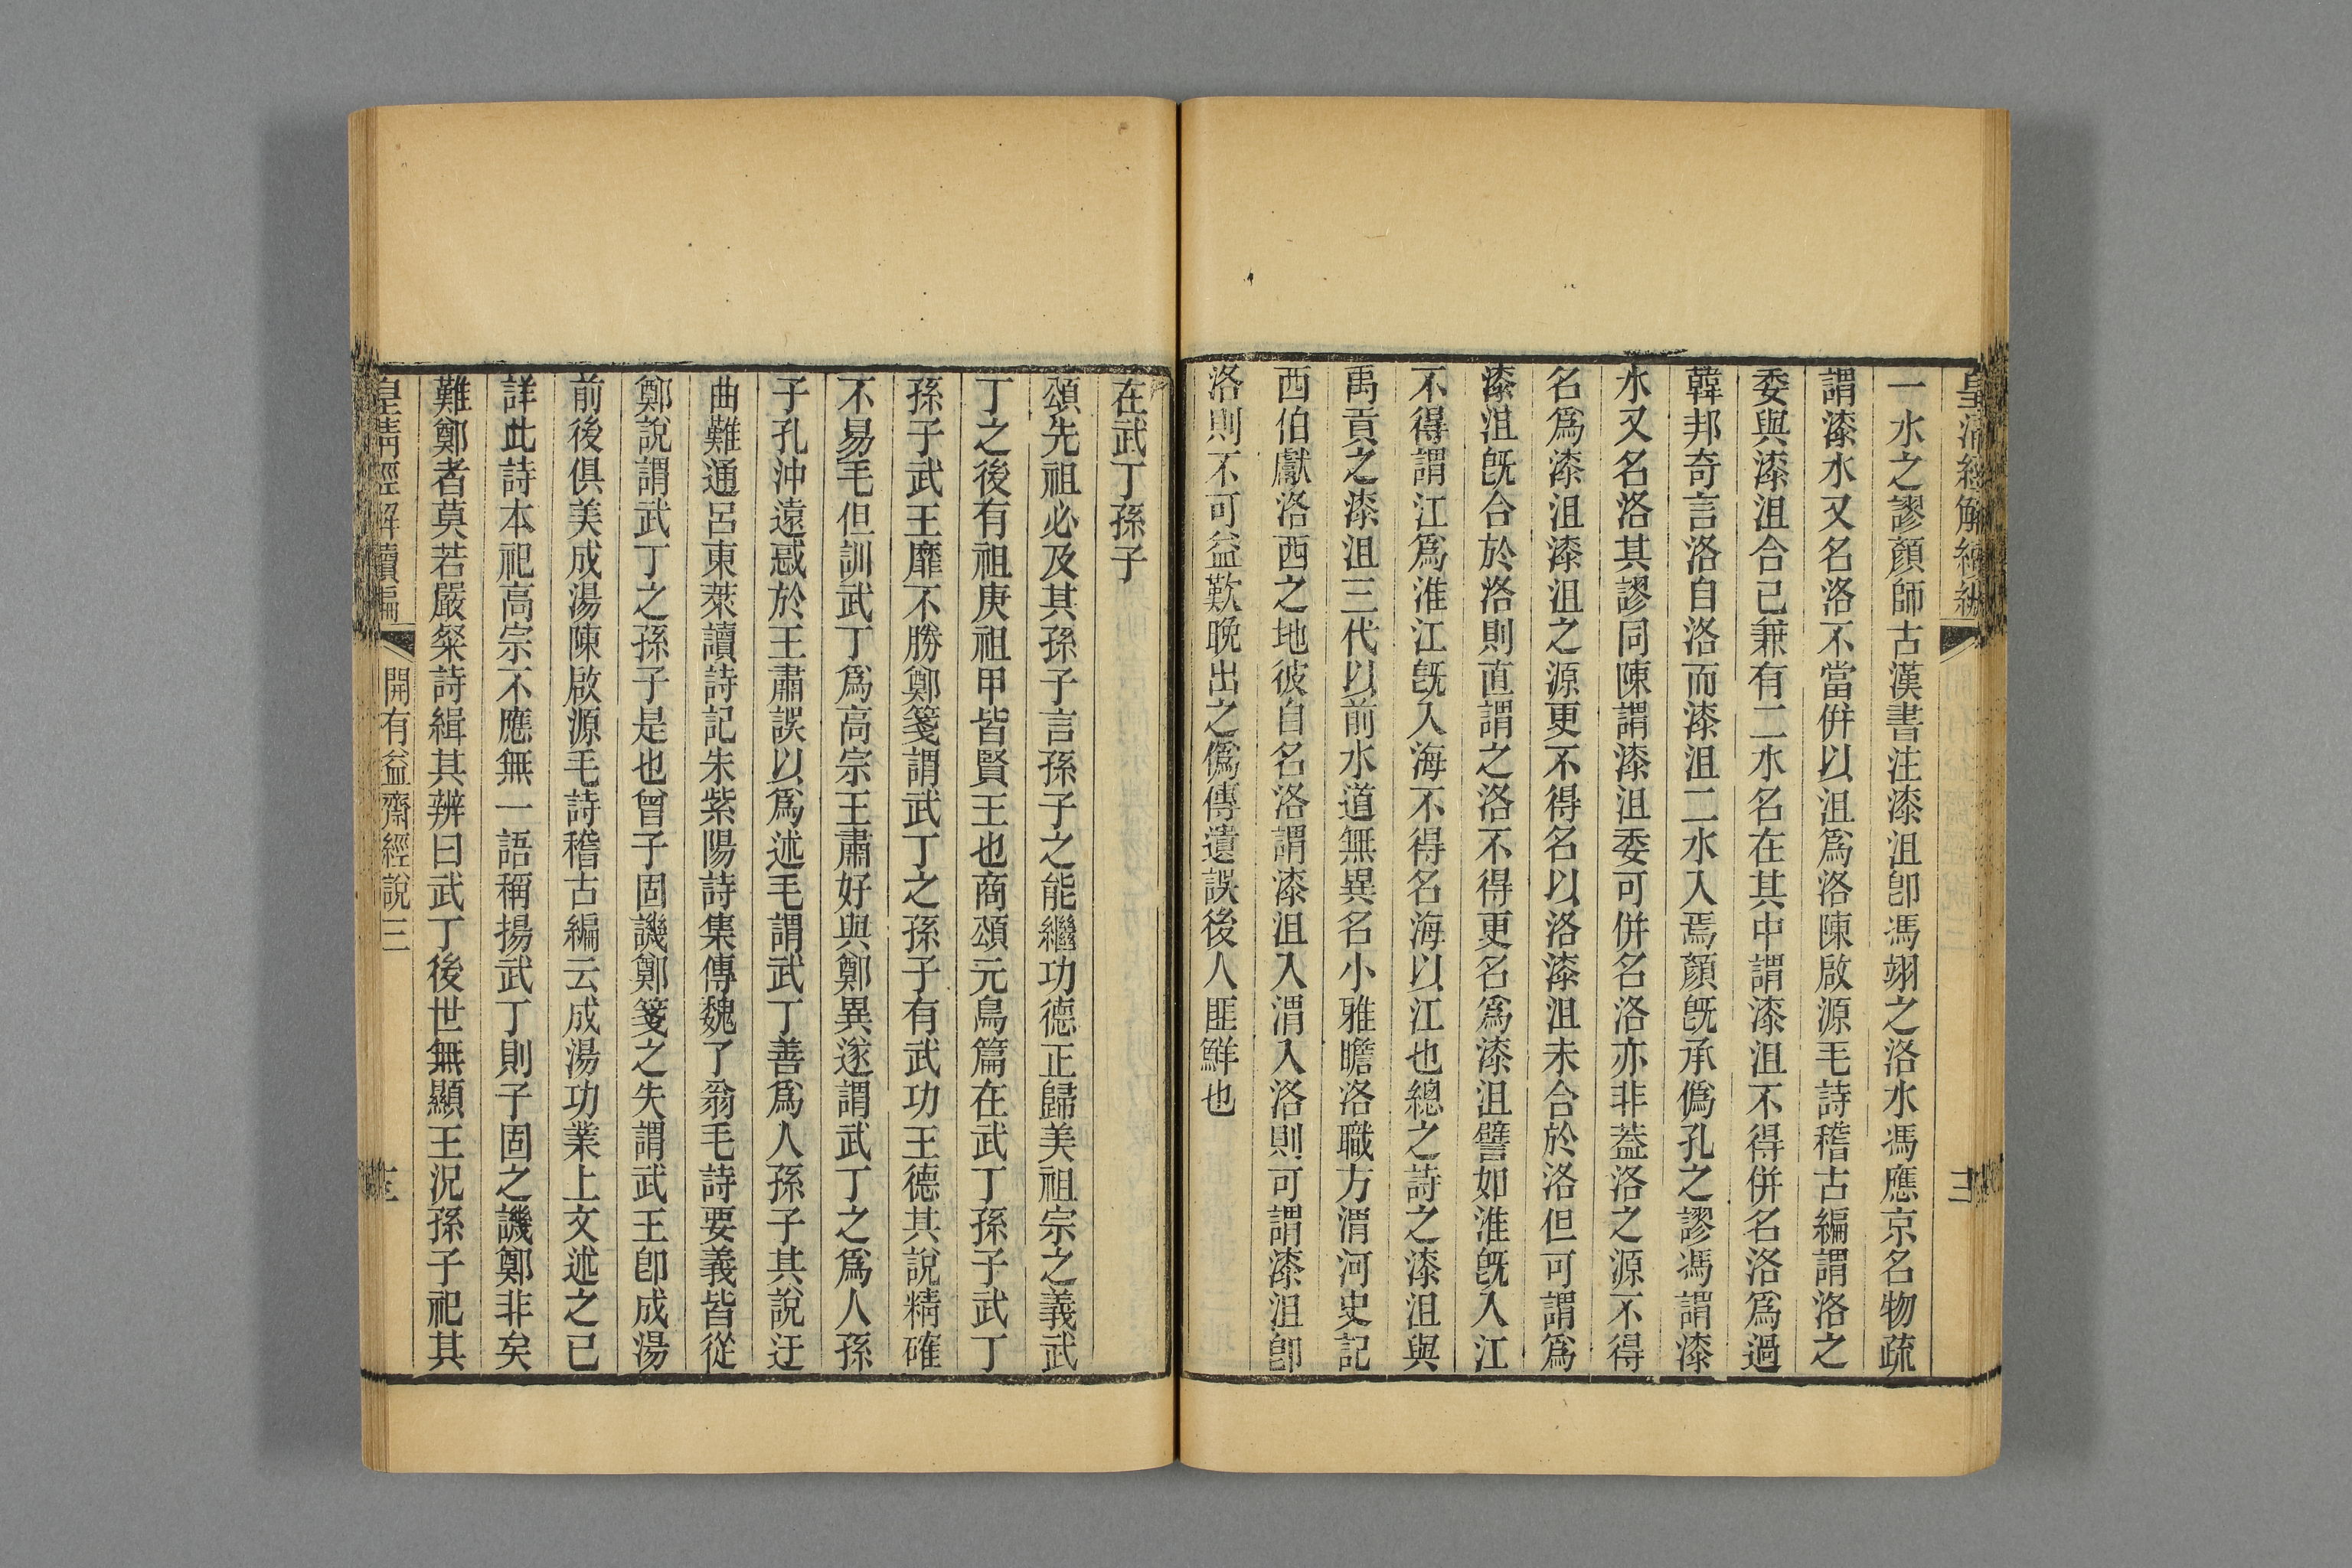 皇清經解續編
一水之謬顏師古漢書注漆沮卽馮翊之洛水馮應京名物疏
謂漆水又名洛不當倂以沮爲洛陳啟源毛詩稽古編謂洛之
委與漆沮合已兼有二水名在其中謂漆沮不得倂名洛爲過
韓邦奇言洛自洛而漆沮二水入焉顏旣承僞孔之謬馮謂漆
水又名洛其謬同陳謂漆沮委可倂名洛亦非葢洛之源不得
名爲漆沮漆沮之源更不得名以洛漆沮未合於洛但可謂爲
漆沮旣合於洛則直謂之洛不得更名爲漆沮譬如淮旣入江
不得謂江爲淮江旣入海不得名海以江也總之詩之漆沮與
禹貢之漆沮三代以前水道無異名小雅瞻洛職方渭河史記
西伯獻洛西之地彼自名洛謂漆沮入渭入洛則可謂漆沮卽
洛則不可益歎晚出之僞傳遺誤後人匪鮮也
在武丁孫子
頌先祖必及其孫子言孫子之能繼功德正歸美祖宗之義武
丁之後有祖庚祖甲皆賢王也商頌元鳥篇在武丁孫子武丁
孫子武王靡不勝鄭箋謂武丁之孫子有武功王德其說精確
不易毛但訓武丁爲高宗王肅好與鄭異遂謂武丁之爲人孫
子孔沖遠惑於王肅誤以爲述毛謂武丁善爲人孫子其說迂
曲難通呂東萊讀詩記朱紫陽詩集傳魏了翁毛詩要義皆從
鄭說謂武丁之孫子是也曾子固譏鄭箋之失謂武王卽成湯
前後俱美成湯陳啟源毛詩稽古編云成湯功業上文述之已
詳此詩本祀高宗不應無一語稱揚武丁則子固之譏鄭非矣
難鄭者莫若嚴粲詩緝其辨曰武丁後世無顯王況孫子祀其
皇清經解續編
開有益齋經說三